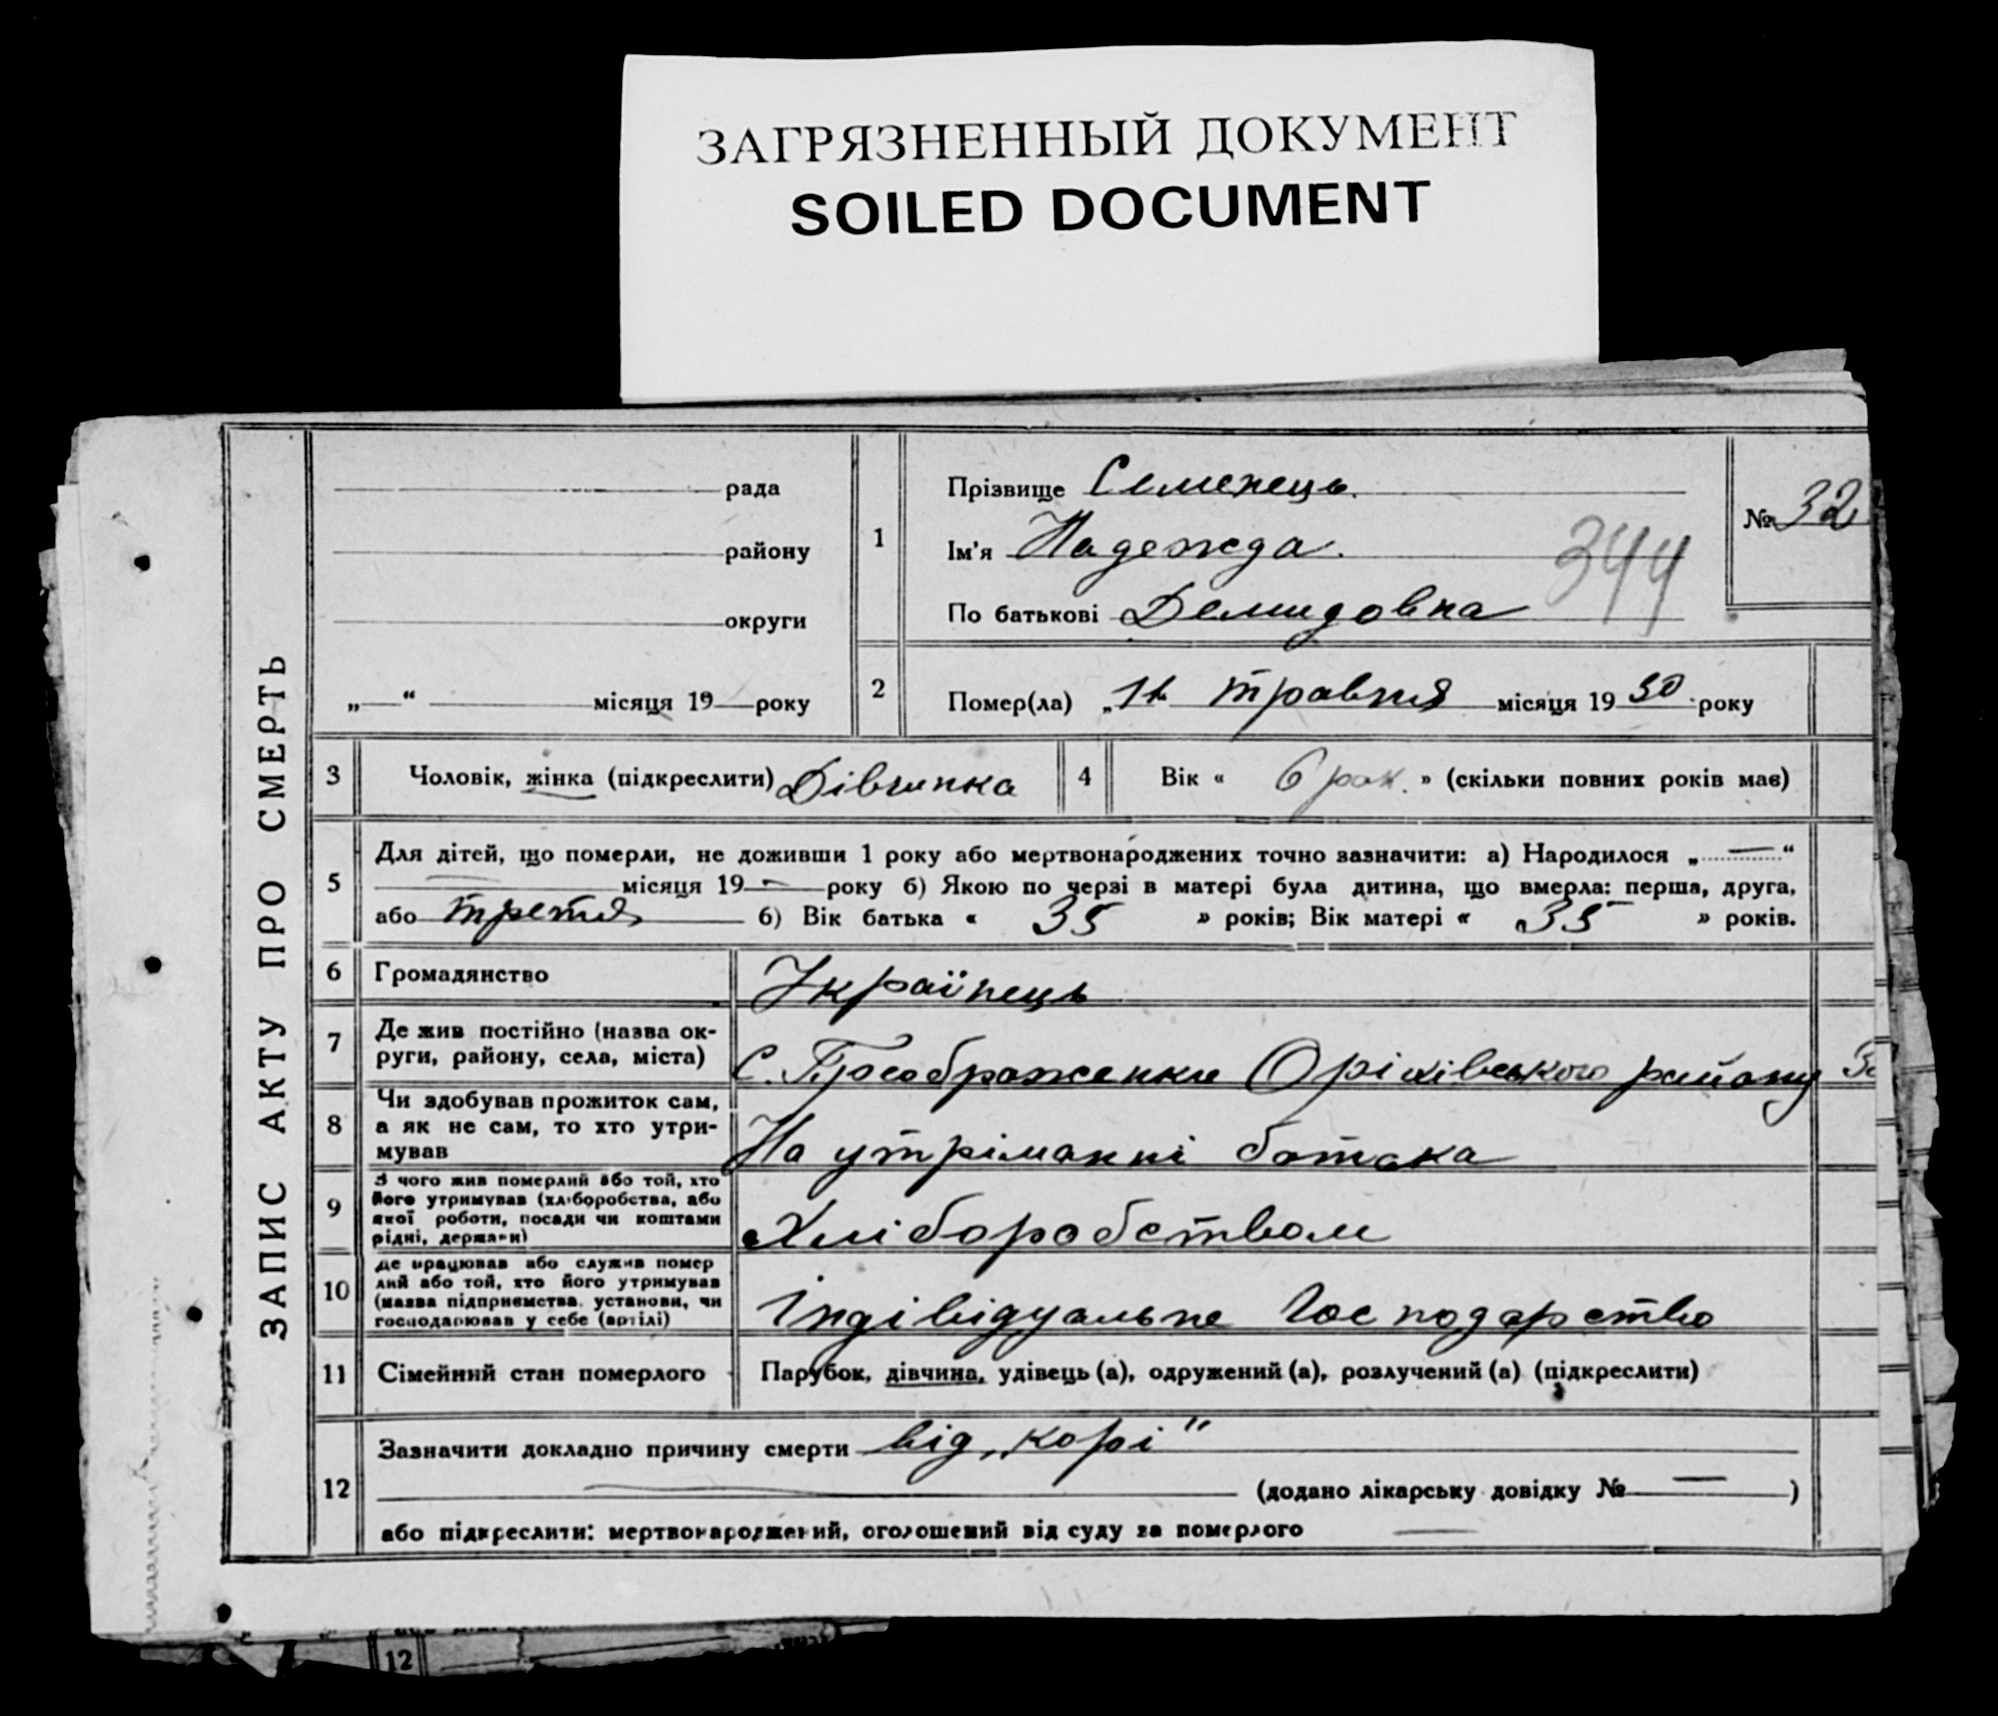 ЗАГРЯЗНЕННЫЙ ДОКУМЕНТ
SOILED DOCUMENT
ЗАПИС АКТУ ПРО СМЕРТЬ
рада
району
округи
„—“ місяця 19 — року
1
Прізвище Семенець.
Ім'я Надежда.
По батькові Демидовна
344
№ 32
2
Помер(ла) „ травня місяця 19 30 року
3 Чоловік, жінка (підкреслити) Дівчинка
4 Вік « 6 рок. » (скільки повних років має)
5
Для дітей, що померли, не доживши 1 року або мертвонароджених точно зазначити: а) Народилося „—“
— місяця 19 — року б) Якою по черзі в матері була дитина, що вмерла: перша, друга,
або третя б) Вік батька « 35 » років; Вік матері « 35 » років.
6 Громадянство Українець
7 Де жив постійно (назва ок-
руги, району, села, міста) С. Преображенка Оріхівського району
8 Чи здобував прожиток сам,
а як не сам, то хто утри-
мував На утріманні батька
9 З чого жив померлий або той, хто
його утримував (хліборобства, або
якої роботи, посади чи коштами
рідні, держави) Хліборобством
10 Де працював або служив помер
лий або той, хто його утримував
(назва підприємства, установи, чи
господарював у себе (артілі) Індівідуальне Господарство
11 Сімейний стан померлого Парубок, дівчина, удівець (а), одружений (а), розлучений (а) (підкреслити)
12
Зазначити докладно причину смерти від „корі"
(додано лікарську довідку № — )
або підкреслити: мертвонароджений, оголошений від суду за померлого —
12